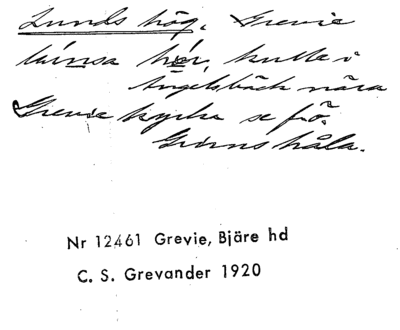 Lunds hög, Grevie
hör, kulle i
Ängelsbäck nära
Grevie kyrka se frö.
Grims håla.
Nr 12461 Grevie, Bjäre hd
C. S. Grevander 1920